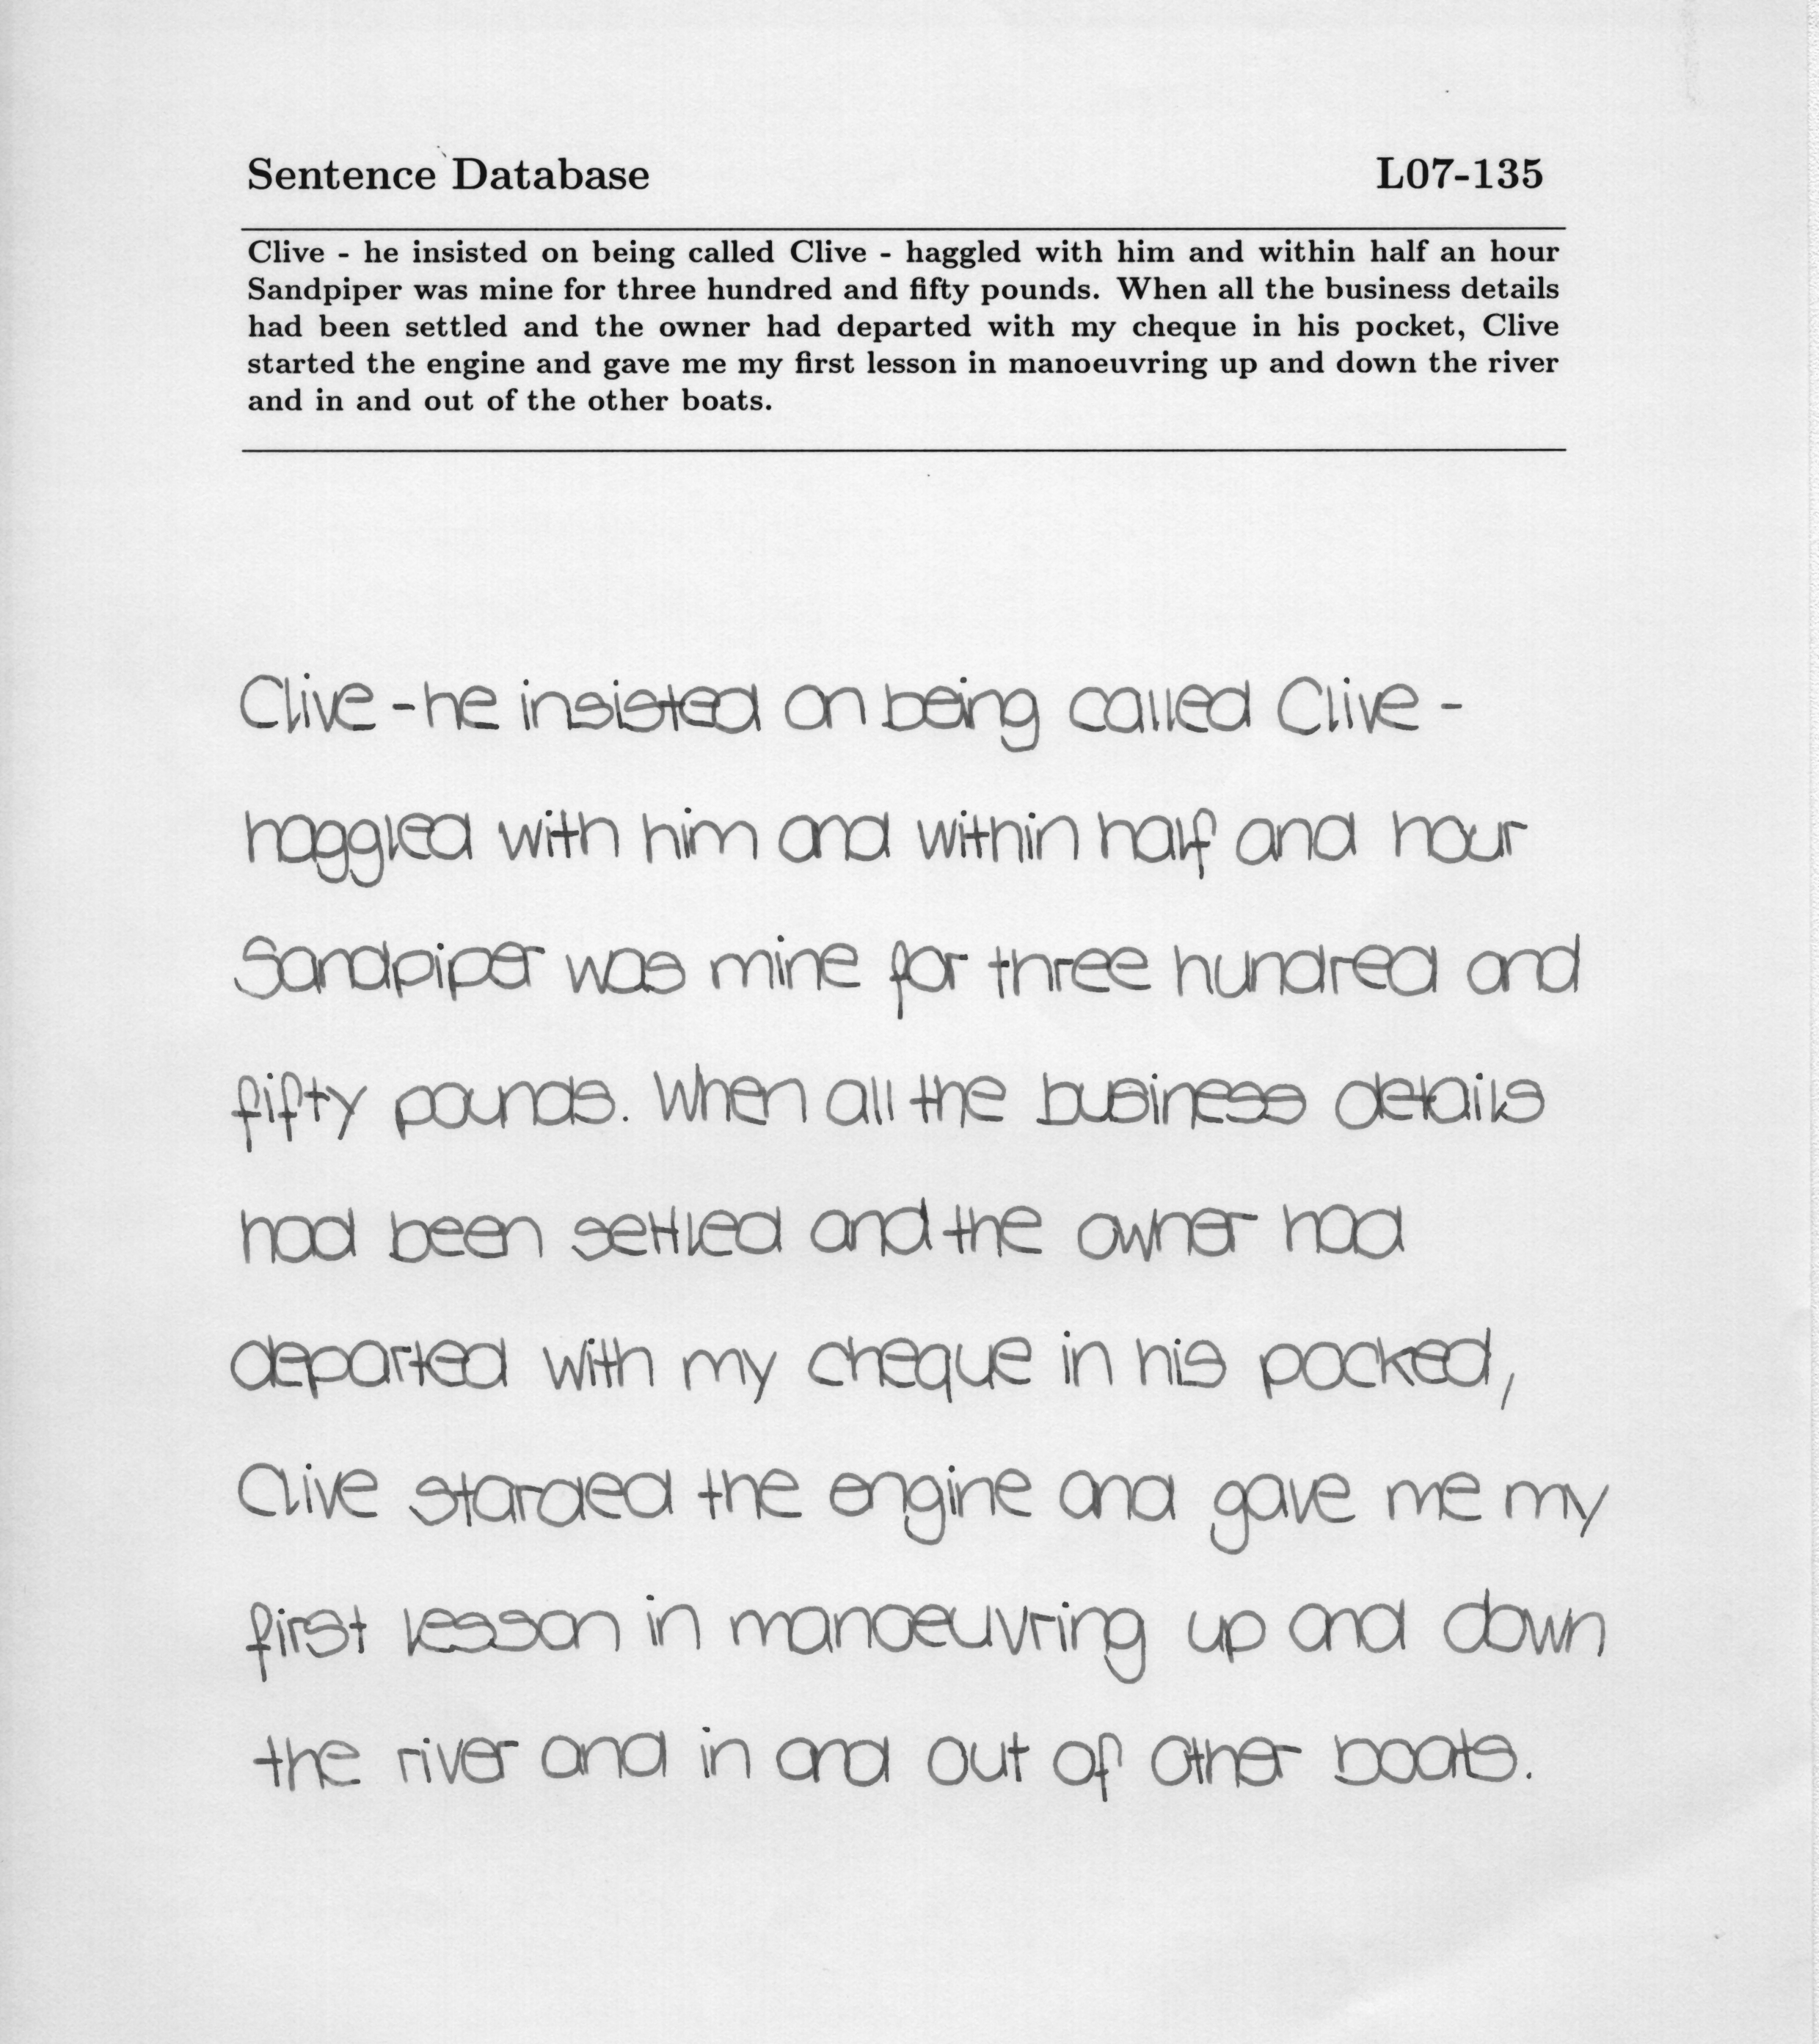 Sentence Database L07-135
Clive - he insisted on being called Clive - haggled with him and within half an hour
Sandpiper was mine for three hundred and fifty pounds. When all the business details
had been settled and the owner had departed with my cheque in his pocket, Clive
started the engine and gave me my first lesson in manoeuvring up and down the river
and in and out of the other boats.
Clive - he insisted on being called Clive -
haggled with him and within half and hour
Sandpiper was mine for three hundred and
fifty pounds. When all the business details
had been settled and the owner had
departed with my cheque in his pocked,
Clive starded the engine and gave me my
first lesson in manoeuvring up and down
the river and in and out of other boats.